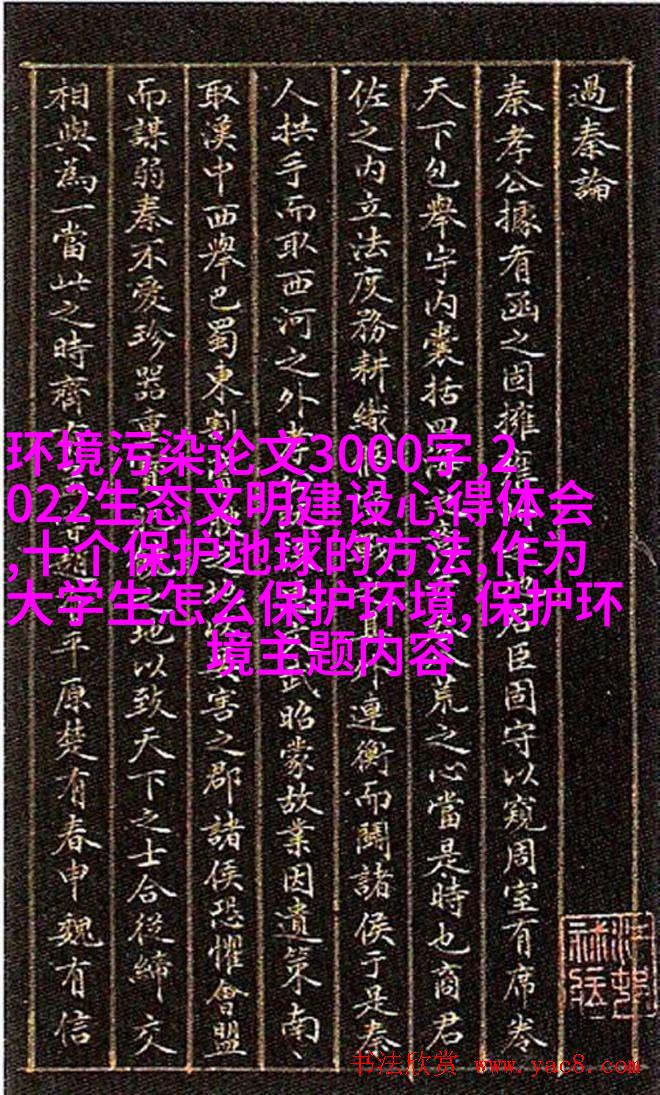 過秦論
秦孝公據有函之固擁君臣固守以窺周室有席卷
天下包舉宇内囊括四荒之心當是時也商君
佐之内立法度務耕織外連衡而鬭諸侯于是秦
人拱手而取西河之外武昭蒙故業因遺策南
取漢中西舉巴蜀東割害之郡諸侯恐懼會盟
而謀弱秦不愛珍器重地以致天下之士合從締交
相與為一當此之時齊平原楚有春申魏有信
环境污染论文3000字,2
022生态文明建设心得体会
,十个保护地球的方法,作为
大学生怎么保护环境,保护环
境主题内容
书法欣赏 www.yac8.com